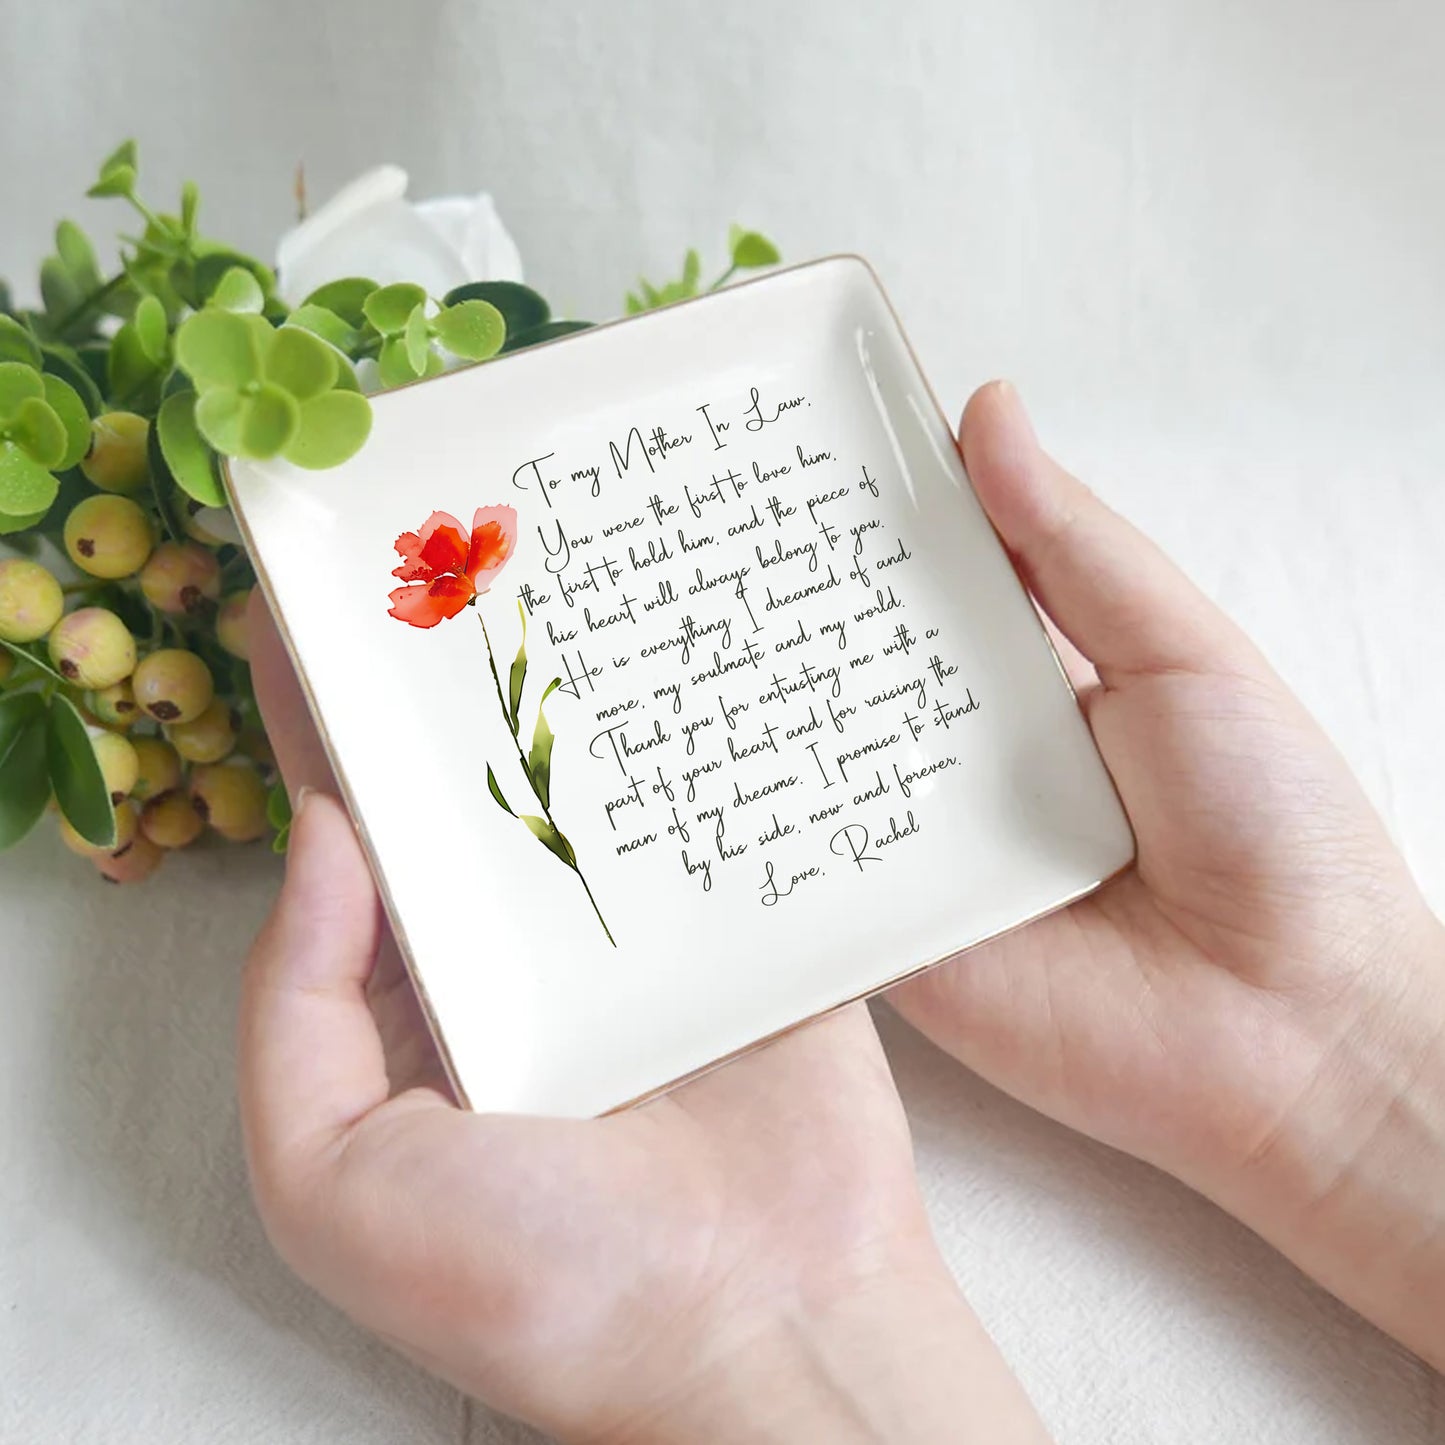 To my Mother In Law,
You were the first to love him,
the first to hold him, and the piece of
his heart will always belong to you.
He is everything I dreamed of and
more, my soulmate and my world.
Thank you for entrusting me with a
part of your heart and for raising the
man of my dreams. I promise to stand
by his side, now and forever.
Love, Rachel